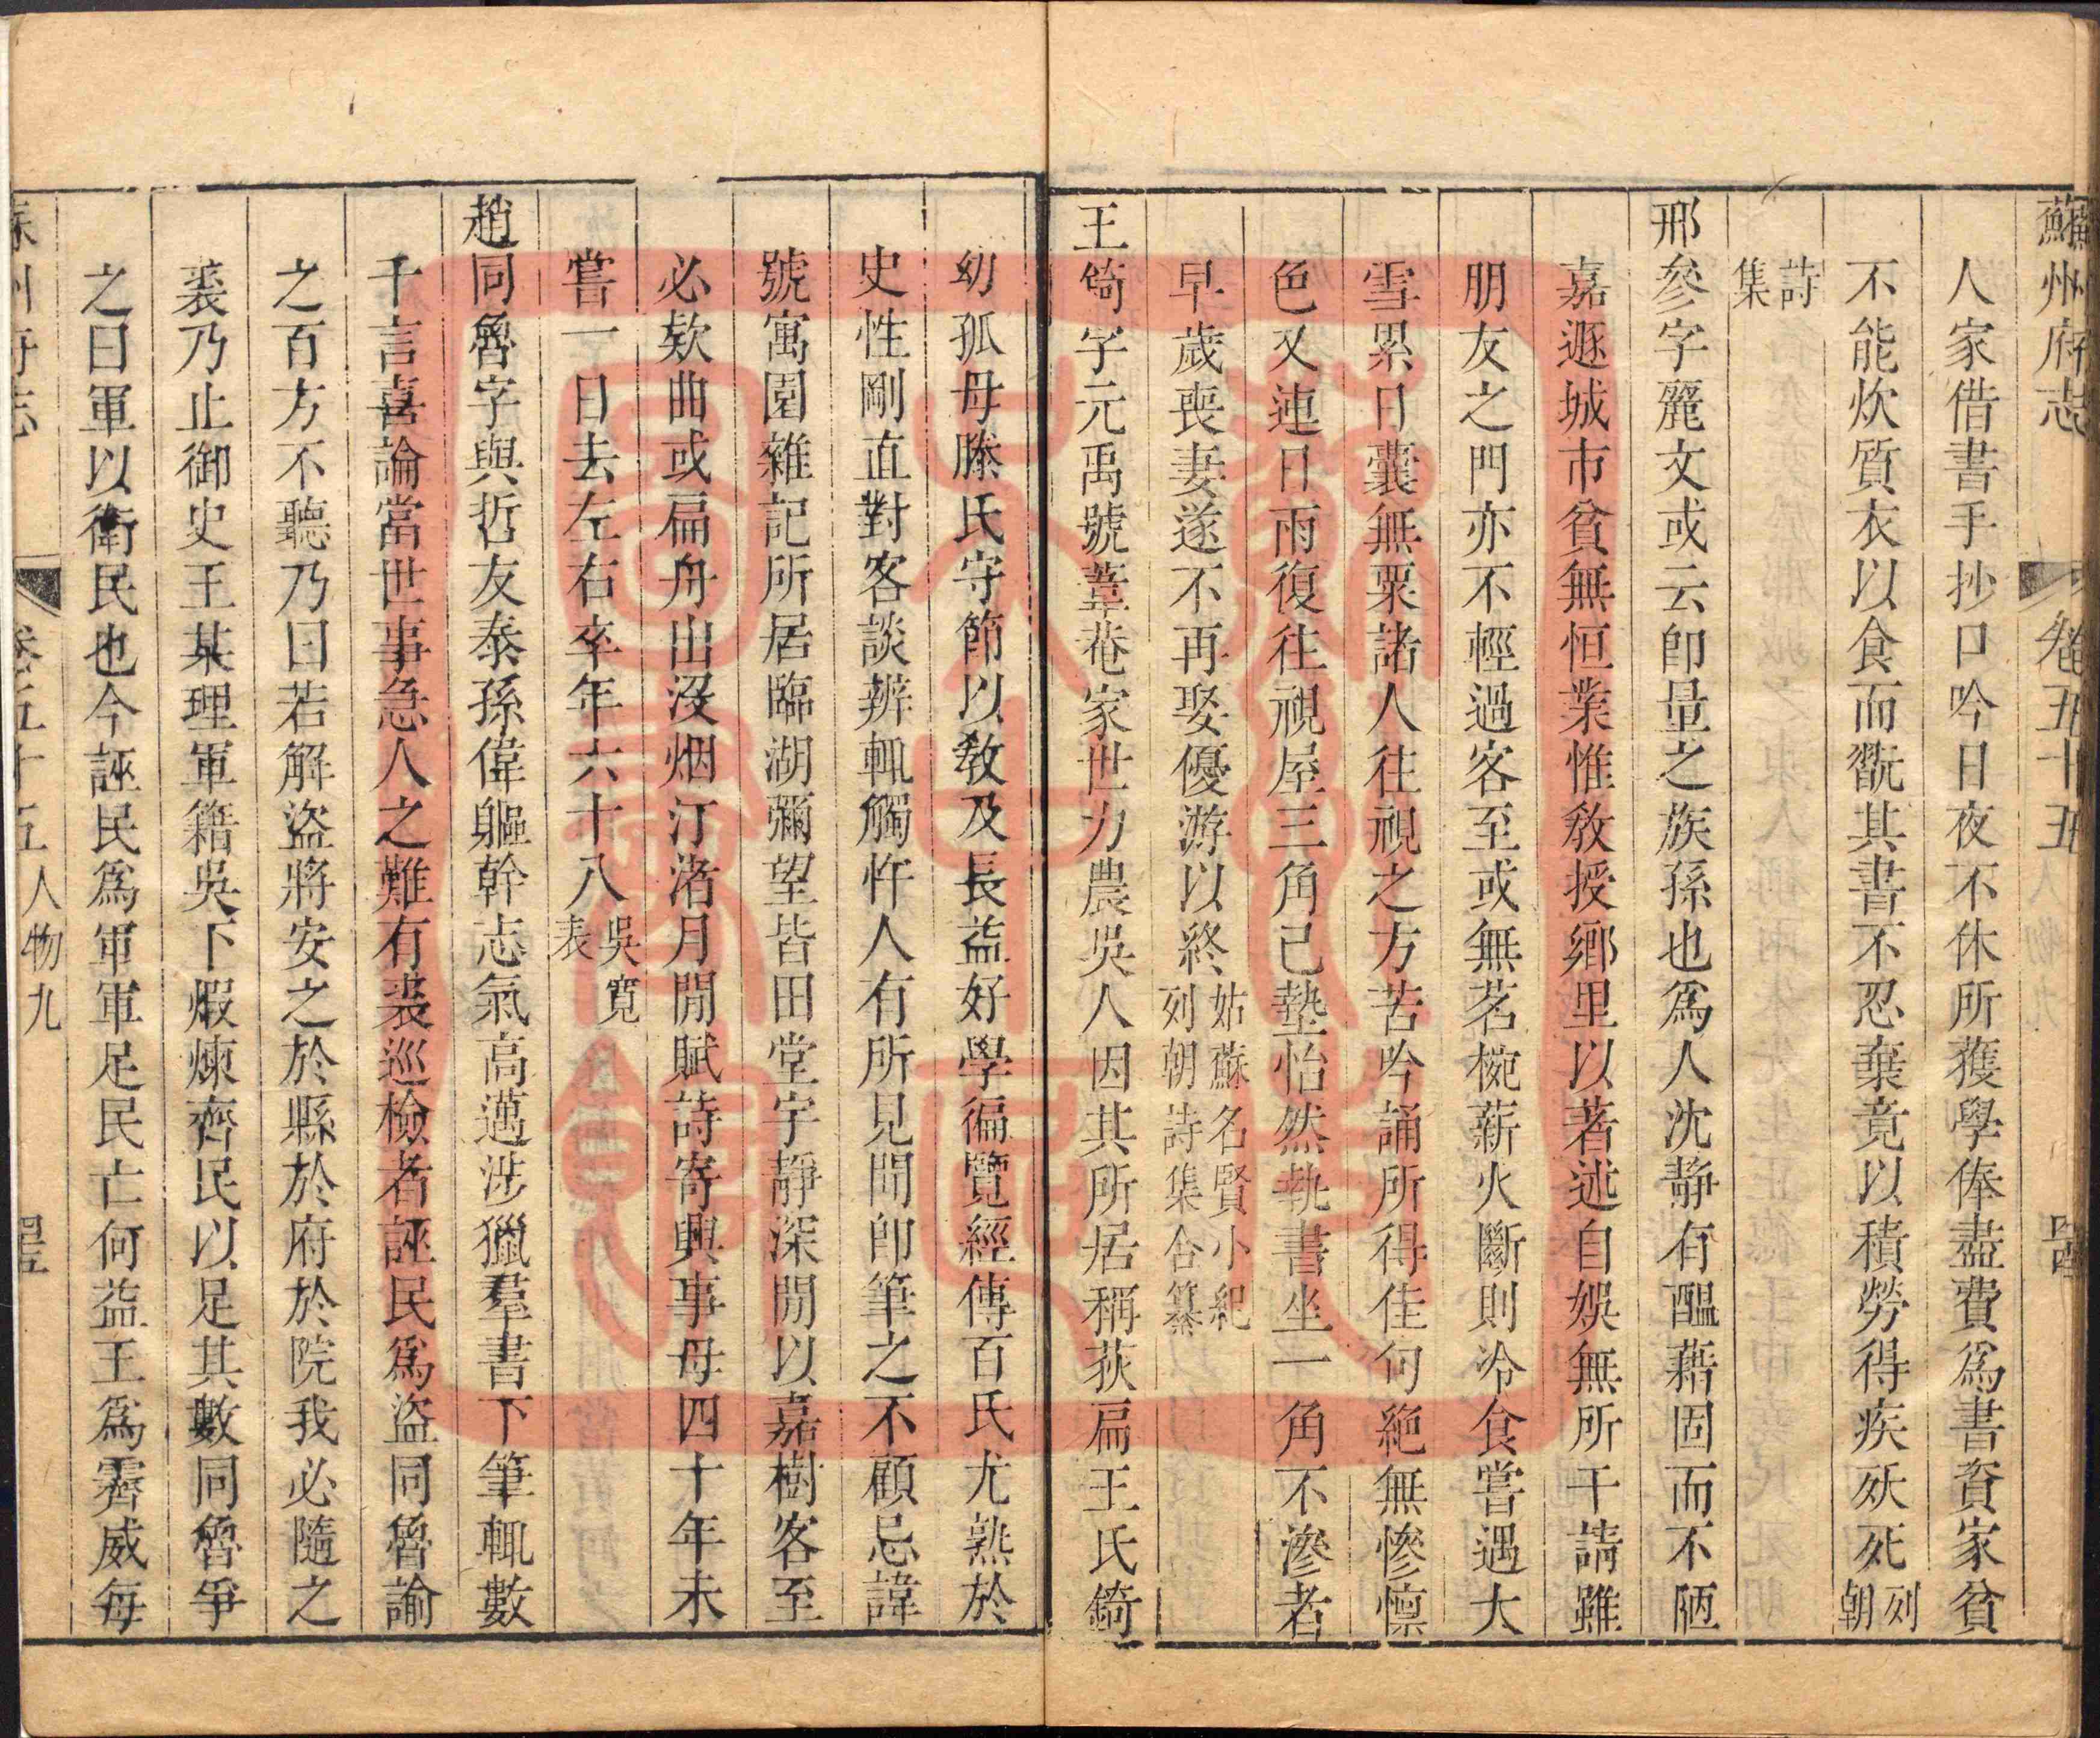 蘇州府志 卷五十五 人物九
人家借書手抄口吟日夜不休所獲學俸盡費爲書資家貧
不能炊質衣以食而翫其書不忍棄竟以積勞得疾殀死列朝
詩集
邢參字麗文或云卽量之族孫也爲人沈靜有醞藉固而不陋
嘉遯城市貧無恒業惟敎授鄉里以著述自娛無所干請雖
朋友之門亦不輕過客至或無茗椀薪火斷則冷食嘗遇大
雪累日囊無粟諸人往視之方苦吟誦所得佳句絕無慘懍
色又連日雨復往視屋三角已墊怡然執書坐一角不滲者
早歲喪妻遂不再娶優游以終姑蘇名賢小紀列朝詩集合纂
王錡字元禹號葦菴家世力農吳人因其所居稱荻扁王氏錡
幼孤母滕氏守節以敎及長益好學徧覽經傳百氏尤熟於
史性剛直對客談辨輒觸忤人有所見聞卽筆之不顧忌諱
號寓圃雜記所居臨湖彌望皆田堂宇靜深閒以嘉樹客至
必欵曲或扁舟出沒烟汀渚月閒賦詩寄興事母四十年未
嘗一日去左右卒年六十八吳寬表
趙同魯字與哲友泰孫偉軀幹志氣高邁涉獵羣書下筆輒數
千言喜論當世事急人之難有裘巡檢者誣民爲盜同魯諭
之百方不聽乃曰若解盜將安之於縣於府於院我必隨之
裘乃止御史王某理軍籍吳下煆煉齊民以足其數同魯爭
之曰軍以衛民也今誣民爲軍軍足民亡何益王爲霽威每
蘇州府志 卷五十五 人物九